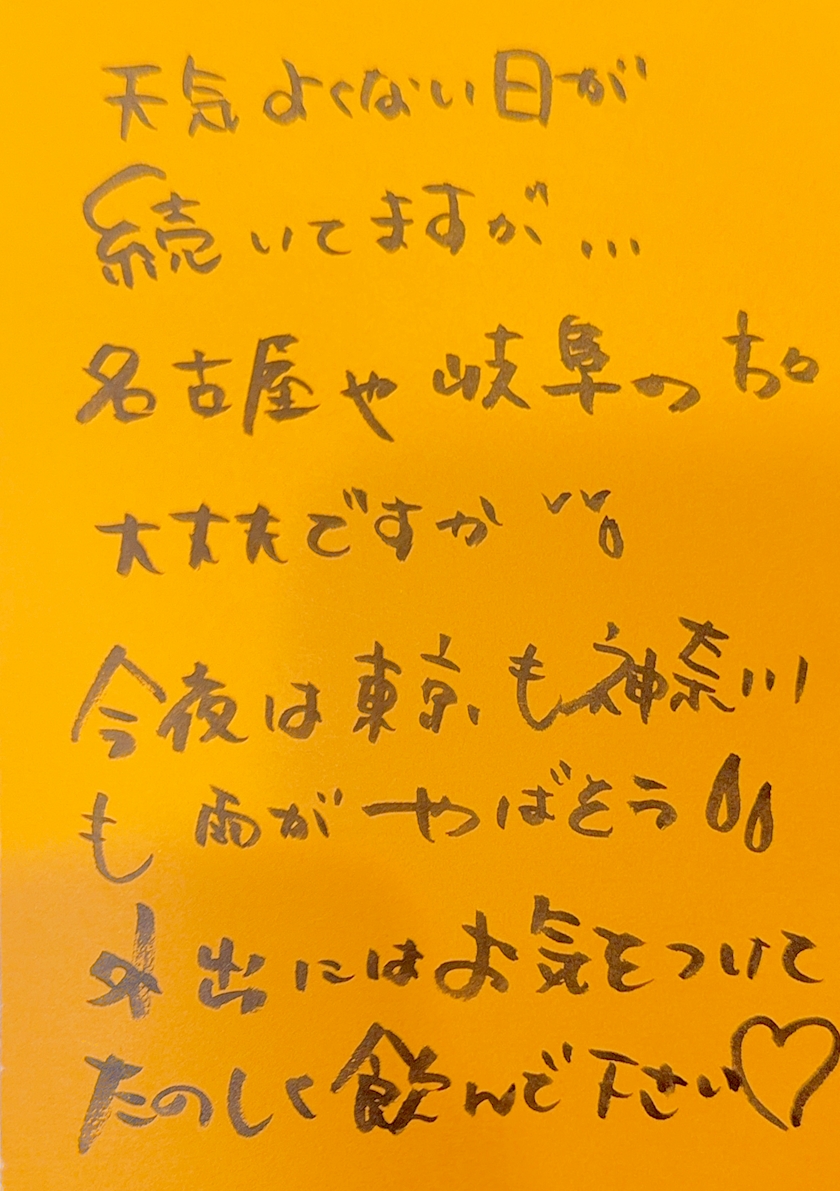 天気よくない日が
続いてますが...
名古屋や岐阜の方
大丈夫ですか
今夜は東京も神奈川
も雨がやばそう
外出にはお気をつけて
たのしく飲んで下さい♡